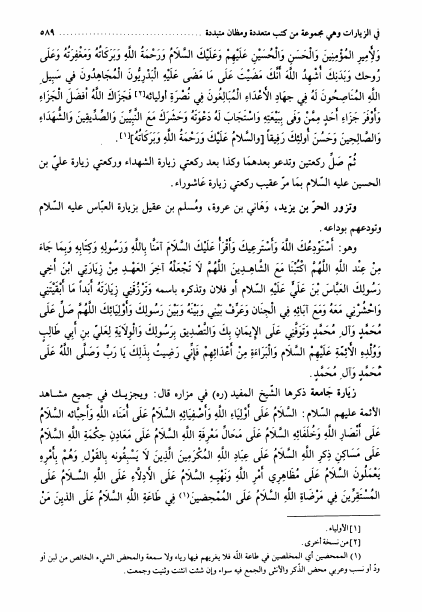 في الزيارات وهي مجموعة من كتب متعددة ومظان متبددة ........................ ٥٨٩
وَلِأَمِيرِ المُؤْمِنِينَ وَالْحَسَنِ وَالْحُسَيْنِ عَلَيْهِمْ وَعَلَيْكَ السَّلَامُ وَرَحْمَةُ اللَّهِ وَبَرَكَاتُهُ وَمَغْفِرَتُهُ وَعَلَى
رُوحك وَبَدَنِكَ أَشْهَدُ اللَّهَ أَنَّكَ مَضَيْتَ عَلَى مَا مَضَى عَلَيْهِ الْبَدْرِيُّونَ الْمُجَاهِدُونَ فِي سَبِيلِ
اللَّهِ الْمُنَاصِحُونَ لَهُ فِي جِهَادِ الْأَعْدَاءِ الْمُبَالِغُونَ فِي نُصْرَةِ أوليائه[٢] فَجَزَاكَ اللَّهُ أَفْضَلَ الْجَزَاءِ
وَأَوْفَرَ جَزَاءِ أَحَدٍ مِمَّنْ وَفَى بِبَيْعَتِهِ وَاسْتَجَابَ لَهُ دَعْوَتَهُ وَحَشَرَكَ مَعَ النَّبِيِّينَ وَالصِّدِّيقِينَ وَالشُّهَدَاءِ
وَالصَّالِحِينَ وَحَسُنَ أُولئِكَ رَفِيقاً [والسَّلامُ عَلَيْكَ وَرَحْمَةُ اللَّهِ وَبَرَكَاتُهُ][١].
ثُمَّ صَلِّ ركعتين وتدعو بعدهما وكذا بعد ركعتي زيارة الشهداء وركعتي زيارة عليّ بن
الحسين عليه السّلام بمَا مرّ عقيب ركعتي زيارة عَاشوراء.
وتزور الحرّ بن يزيد، وَهَاني بن عروة، ومُسلم بن عقيل بزيارة العبّاس عليه السّلام
وتودعهم بوداعه.
وهو: أَسْتَوْدِعُكَ اللَّهَ وَأَسْتَرعيكَ وَأَقْرَأُ عَلَيْكَ السَّلَامَ آمَنَّا بِاللَّهِ وَرَسُولِهِ وَكِتَابِهِ وَبِمَا جَاءَ
مِنْ عِنْدِ اللَّهِ اللَّهُمَّ اكْتُبْنَا مَعَ الشَّاهِدِينَ اللَّهُمَّ لَا تَجْعَلْهُ آخِرَ الْعَهْدِ مِنْ زِيَارَتِي ابْنَ أَخِي
رَسُولِكَ الْعَبَّاسَ بْنَ عَلِيٍّ عَلَيْهِ السَّلام أو فلان وتذكره باسمه وَتَرْزُقَنِي زِيَارَتَهُ أَبَداً مَا أَبْقَيْتَنِي
وَاحْشُرْنِي مَعَهُ وَمَعَ آبَائِهِ فِي الْجِنَانِ وَعَرِّفْ بَيْنِي وَبَيْنَهُ وَبَيْنَ رَسُولِكَ وَأَوْلِيَائِكَ اللَّهُمَّ صَلِّ عَلَى
مُحَمَّدٍ وَآلِ مُحَمَّدٍ وَتَوَفَّنِي عَلَى الإِيمَانِ بِكَ وَالتَّصْدِيقِ بِرَسُولِكَ وَالْوِلَايَةِ لِعَلِيِّ بنِ أَبِي طَالِبٍ
وَوُلْدِهِ الْأَئِمَّةِ عَلَيْهِمُ السَّلام وَالْبَرَاءَةِ مِنْ أَعْدَائِهِمْ فَإِنِّي رَضِيتُ بِذَلِكَ يَا رَبِّ وَصَلَّى اللَّهُ عَلَى
مُحَمَّدٍ وَآلِ مُحَمَّدٍ.
زيَارة جَامعة ذكرها الشّيخ المفيد (ره) في مزاره قال: ويجزيك في جميع مشاهد
الأئمة عليهم السّلام: السَّلَامُ عَلَى أَوْلِيَاءِ اللَّهِ وَأَصْفِيَائِهِ السَّلَامُ عَلَى أُمَنَاءِ اللَّهِ وَأَحِبَّائِهِ السَّلَامُ
عَلَى أَنْصَارِ اللَّهِ وَخُلَفَائِهِ السَّلَامُ عَلَى مَحَالِّ مَعْرِفَةِ اللَّهِ السَّلَامُ عَلَى مَعَادِنِ حِكْمَةِ اللَّهِ السَّلَامُ
عَلَى مَسَاكِنِ ذِكْرِ اللَّهِ السَّلَامُ عَلَى عِبَادِ اللَّهِ الْمُكْرَمِينَ الَّذِينَ لَا يَسْبِقُونَه بِالْقَوْلِ وَهُمْ بِأَمْرِهِ
يَعْمَلُونَ السَّلَامُ عَلَى مُظَاهِرِي أَمْرِ اللَّهِ وَنَهْيِهِ السَّلَامُ عَلَى الْأَدِلَّاءِ عَلَى اللَّهِ السَّلَامُ عَلَى
الْمُسْتَقِرِّينَ فِي مَرْضَاةِ اللَّهِ السَّلَامُ عَلَى الْمُمَحِّضِينَ(١) فِي طَاعَةِ اللَّهِ السَّلَامُ عَلَى الذينَ مَنْ
[١] الأولياء.
[٢] من نسخة أخرى.
(١) الممحضين أي المخلصين في طاعة اللّه فلا يغريهم فيها رياء ولا سمعة والمحض الشيء الخالص من لبن أو
ودّ أو نسب وعربي محض الذّكر والأنثى والجمع فيه سواء وإن شئت انثت وثنيت وجمعت.